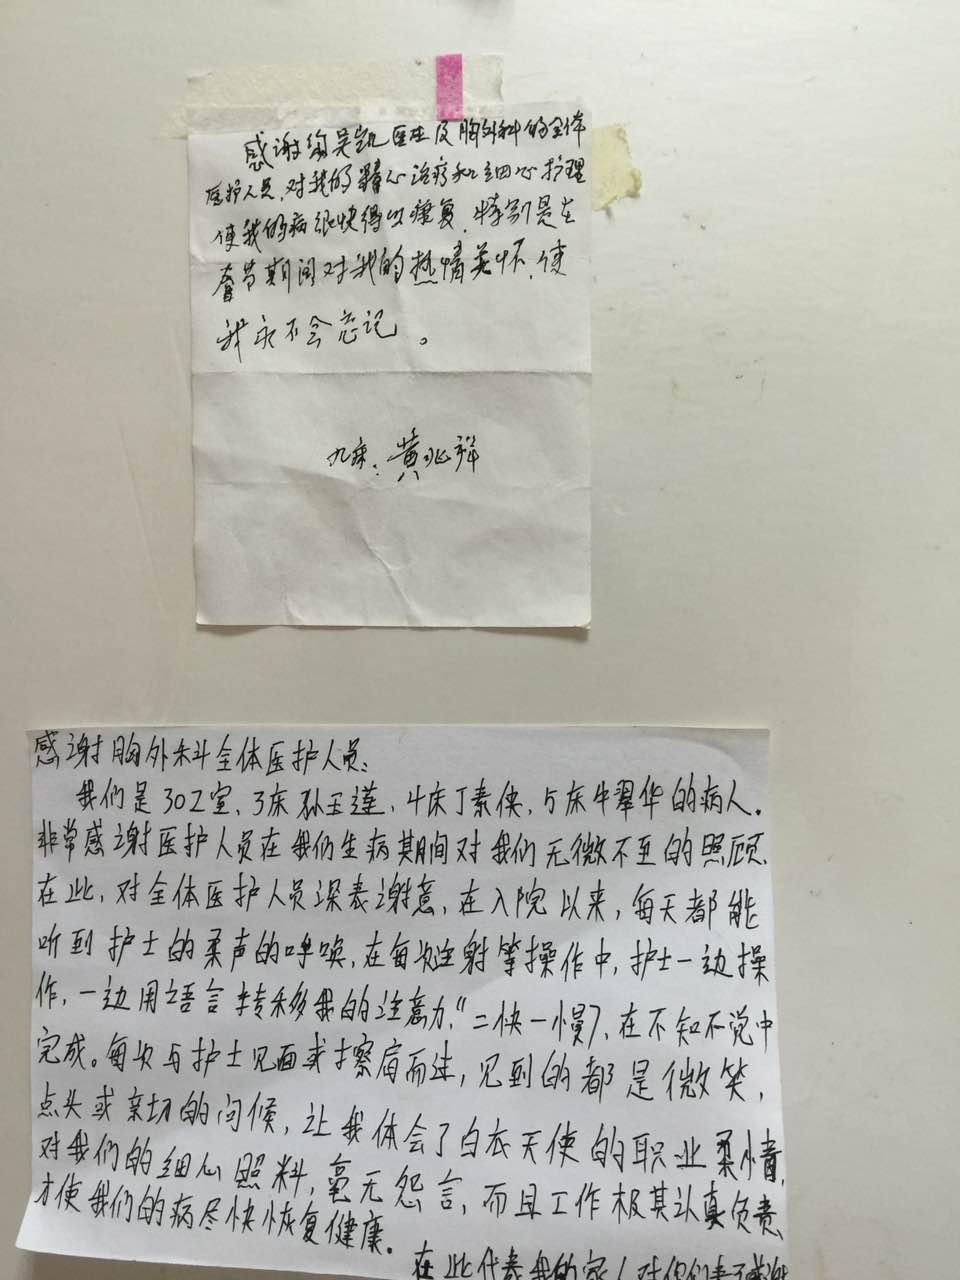 感谢吴凯医生及胸外科的全体
医护人员,对我的精心治疗和细心护理
使我的病很快得以康复.特别是在
春节期间对我的热情关怀,使
我永不会忘记。
九床:黄兆祥
感谢胸外科全体医护人员:
我们是302室、3床孙玉莲、4床丁素侠,5床牛翠华的病人.
非常感谢医护人员在我们生病期间对我们无微不至的照顾.
在此,对全体医护人员深表谢意,在入院以来,每天都能
听到护士的柔声的呼唤,在每次注射等操作中,护士一边操
作,一边用语言转移我的注意力,“二快一慢”,在不知不觉中
完成。每次与护士见面或擦肩而过,见到的都是微笑,
点头或亲切的问候,让我体会了白衣天使的职业柔情,
对我们的细心照料,毫无怨言,而且工作极其认真负责,
才使我们的病尽快恢复健康.
在此代表我的家人对你们表示感谢